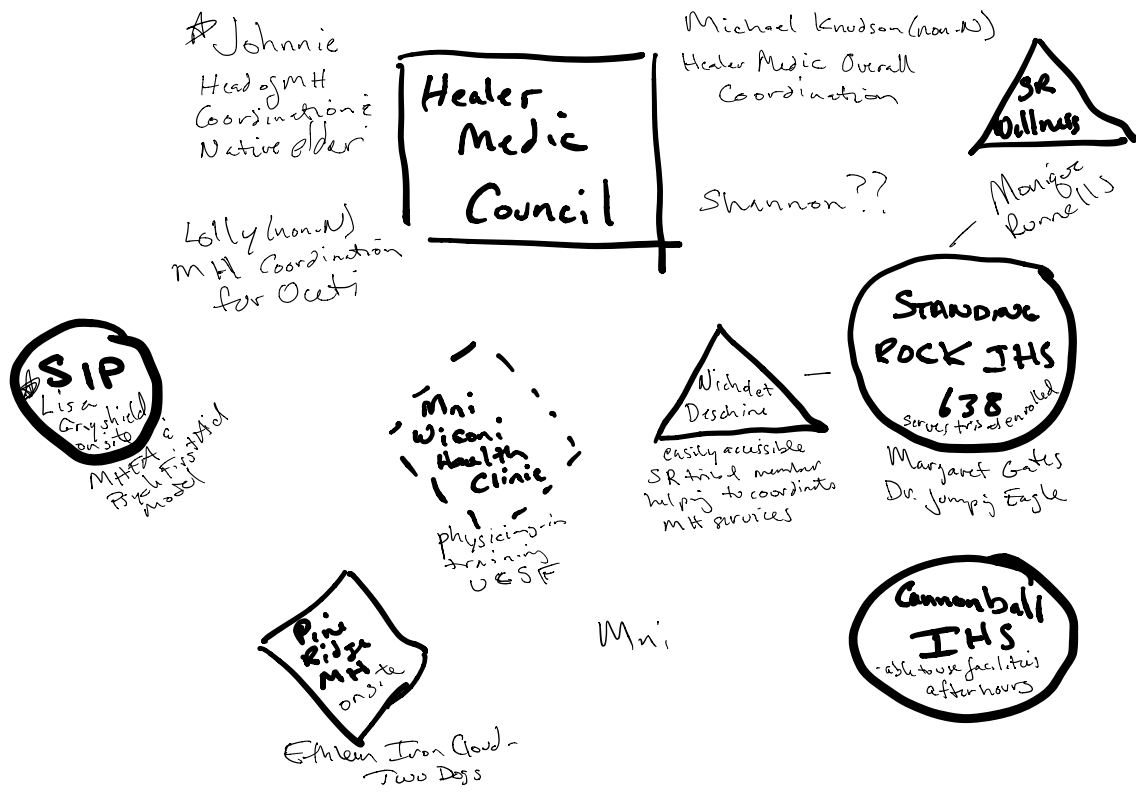 Johnnie
Head of MH
Coordination &
Native elder
Healer
Medic
Council
Michael Knudson (non-N)
Healer Medic Overall
Coordination
SR
Wellness
Monique
Runnells
Shannon??
Lolly (non-N)
MH Coordination
for Oceti
SIP
Lisa
Grayshield
onsite
MHFA &
Psych First Aid
Model
Mni
Wiconi
Health
Clinic
physicians-in
training
UCSF
Deschine
easily accessible
SR tribal member
helping to coordinate
MH services
STANDING
ROCK IHS
638
serves tribal enrolled
Margaret Gates
Dr. Jumping Eagle
Pine
Ridge
MH
onsite
Ethleen Iron Cloud-
Two Dogs
Mni
Cannonball
IHS
-able to use facilities
after hours